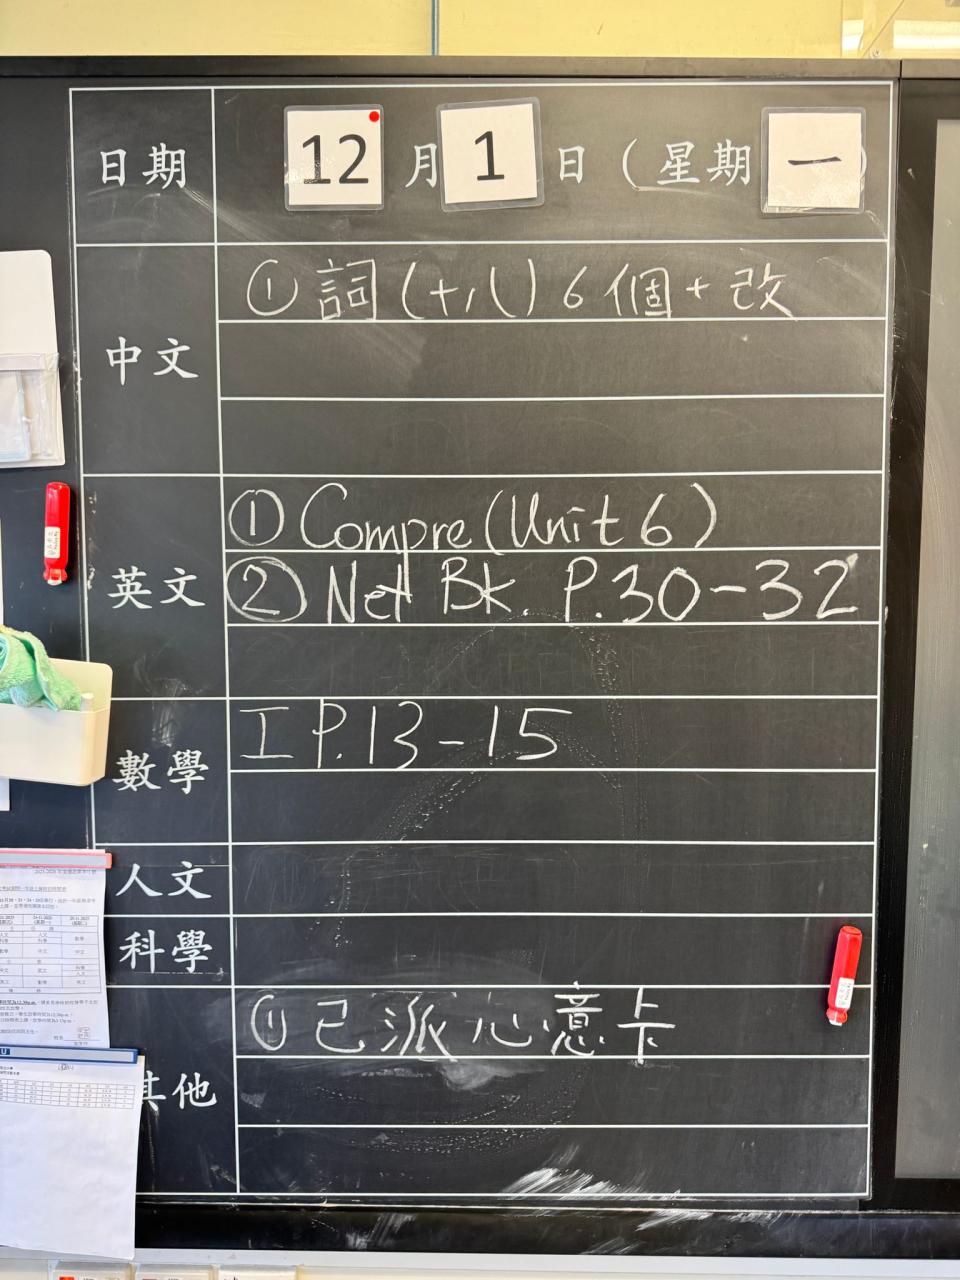 日期 12 月 1 日 (星期 一 )
中文 ① 詞 (十八) 6 個 + 改
英文 ① Compre (Unit 6)
② Net Bk. P.30-32
數學 工 P.13-15
人文
科學
其他 ① 已派心意卡